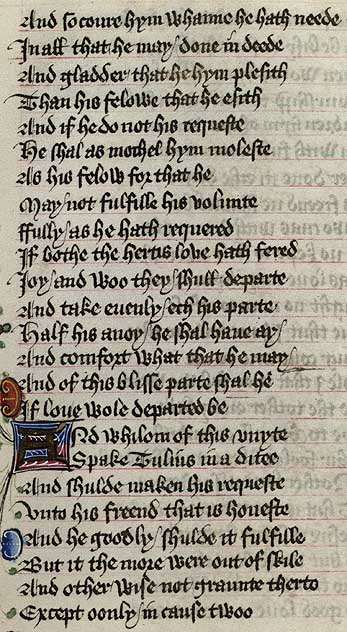 And socoure hym whanne he hath neede
In all that he may / done in deede
And gladder that he hym plesith
Than his felowe that he esith
And if he do not his requeste
He shal as mochel hym moleste
As his felow for that he
May not fulfille his volunte
ffully / as he hath requered
If bothe the hertis love hath fered
Joy / and woo they / shull departe
And take euenly / ech his parte
Half his anoy / he shal haue ay /
And comfort what that he may
And of this blisse parte shal he
If loue wole departed be
And whilom of this vnyte
Spake Tulius in a ditee
And shulde maken his requeste
Vnto his freend that is honeste
And he goodly / shulde it fulfille
But it the more were out of skile
And other wise not graunte therto
Except oonly / in cause twoo